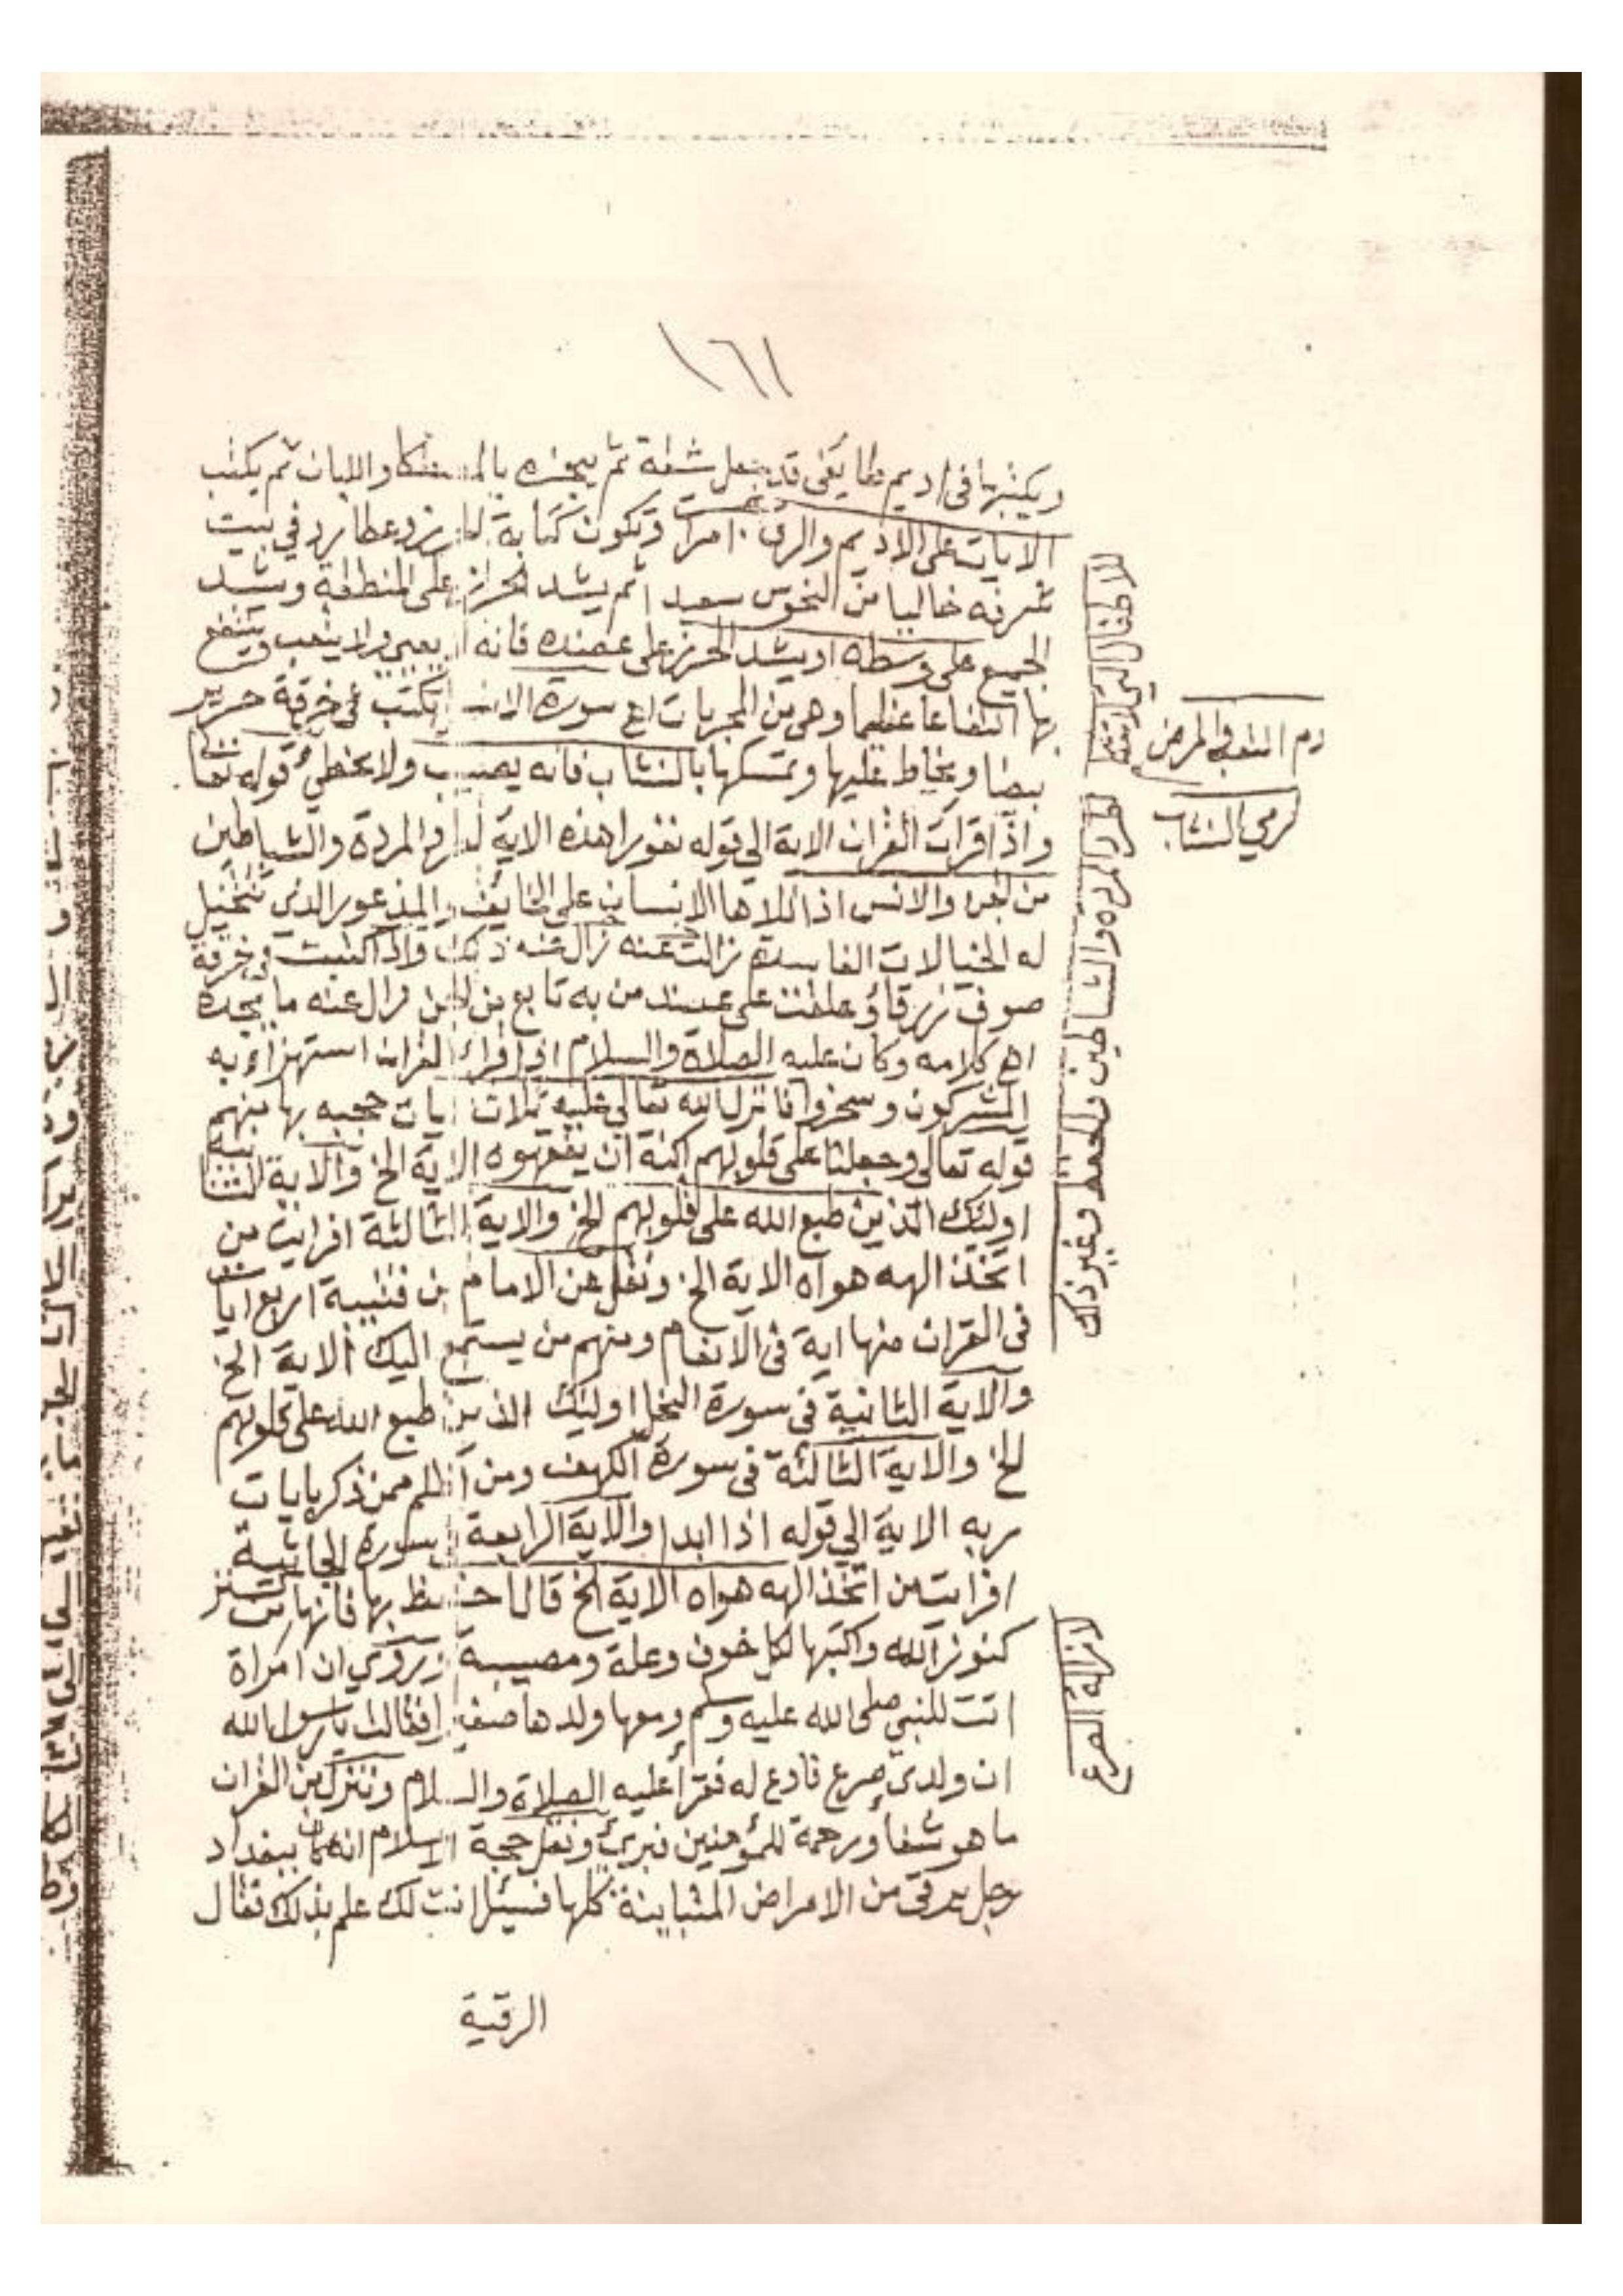 ١٦١
ويكتبها في اديم طايفي قد جعل شقة ثم يبخره بالمصتكا واللبان ثم يكتب
الايات على الاديم والرق وتكون كتابة عطارد في بيت
شرفه خاليا من النحوس سعيدا ثم يشد الحرز على المنطقة ويشد
الجميع على وسطه او يشد الحرز على عضده فانه لا يعيى ولا يتعب وينتفع
بها انتفاعا عظيما وهي من المجربات اه سورة تكتب في خرقة حرير
بيضا ويخاط عليها ويمسكها بالنشاب فانه يصيب ولا يخطئ قوله تعا
واذا قرات القران الاية الى قوله نفورا هذه الاية المردة والشياطين
من الجن والانس اذا تلاها الانسان على الخايف والمذعور الذي تتخيل
له الخيالات الفاسدة زالت عنه زال عنه ذلك واذا كتبت في خرقة
صوف زرقا وعلقت على عضد من به تابع من الجن زال عنه ما يجده
اه كلامه وكان عليه الصلاة والسلام اذا قرأ القران استهزاء به
المشركون وسخروا فانزل الله تعالى عليه ثلاث ايات حجبه بها منهم
قوله تعالى وجعلنا على قلوبهم اكنة ان يفقهوه الاية الخ والاية الثانية
اوليك الذين طبع الله على قلوبهم الخ والاية الثالثة افرايت من
اتخذ الهه هواه الاية الخ ونقل عن الامام بن قتيبة اربع ايات
في القران منها اية في الانعام ومنهم من يستمع اليك الاية الخ
والاية الثانية في سورة النحل اوليك الذين طبع الله على قلوبهم
الخ والاية الثالثة في سورة الكهف ومن اظلم ممن ذكر بايات
ربه الاية الى قوله اذا ابدا والاية الرابعة سورة الجاثية
افرايت من اتخذ الهه هواه الاية الخ قال احتفظ بها فانها من
كنوز الله واكتبها لكل خوف وعلة ومصيبة وروي ان امراة
اتت للنبي صلى الله عليه وسلم ومعها ولدها فقالت يا رسول الله
ان ولدي صرع فادع له فقرأ عليه الصلاة والسلام وننزل من القران
ما هو شفا ورحمة للمؤمنين فبرئ ونقل حجة الاسلام انه كان ببغداد
رجل يرقي من الامراض المتباينة كلها فسيل انت لك علم بذلك فقال
الرقية
لرمي النشاب
لطرد المردة والشياطين والحفظ وغير ذلك
لازالة الصرع